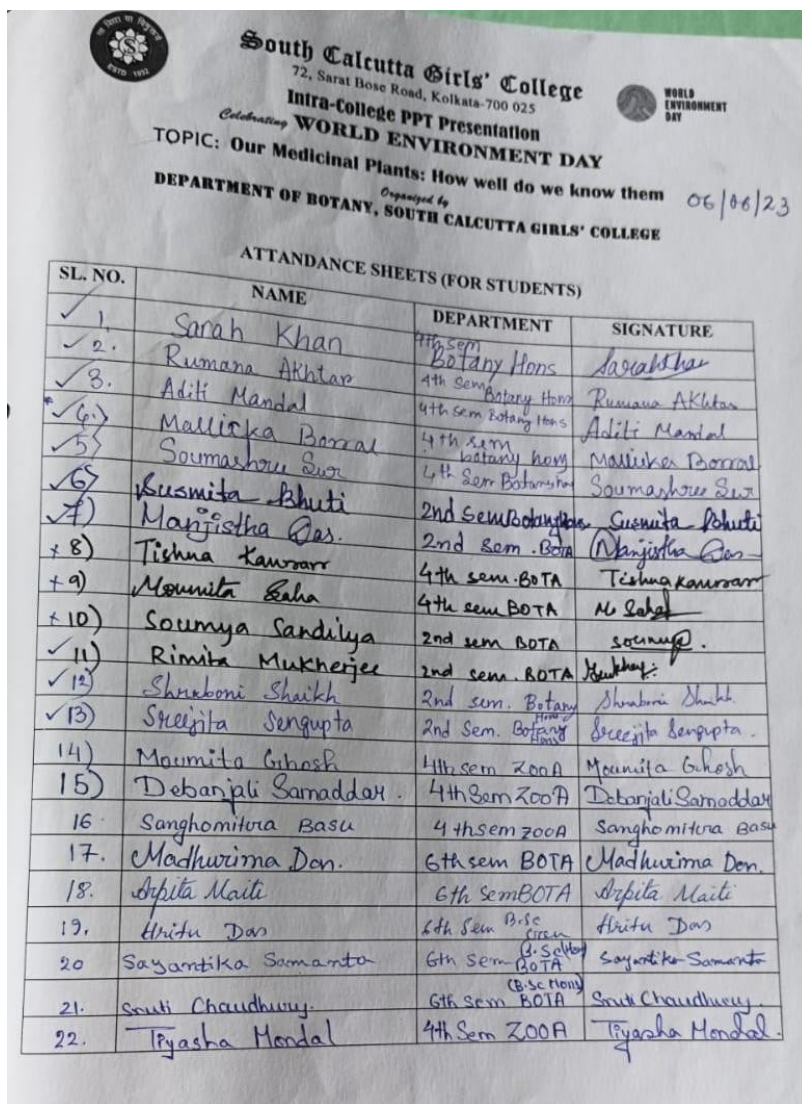 ESTD 1932
South Calcutta Girls' College
72, Sarat Bose Road, Kolkata-700 025
WORLD
ENVIRONMENT
DAY
Intra-College PPT Presentation
Celebrating WORLD ENVIRONMENT DAY
TOPIC: Our Medicinal Plants: How well do we know them 06/06/23
Organized by
DEPARTMENT OF BOTANY, SOUTH CALCUTTA GIRLS' COLLEGE
ATTANDANCE SHEETS (FOR STUDENTS)
SL. NO. NAME DEPARTMENT SIGNATURE
✓ 1. Sarah Khan 4th Sem Botany Hons Sarah Khan
✓ 2. Rumana Akhtar 4th Sem Botany Hons Rumana Akhtar
✓ 3. Aditi Mandal 4th Sem Botany Hons Aditi Mandal
✓ 4.) Mallicka Borral 4th sem botany hons Mallicka Borral
✓ 5) Soumashree Sur 4th Sem Botany Soumashree Sur
✓ 6) Susmita Bhuti 2nd Sem Botany Hons Susmita Bhuti
✓ 7) Manjistha Das. 2nd sem. BOTA Manjistha Das
x 8) Tishna Kawsarr 4th sem. BOTA Tishna Kawsarr
x 9) Moumita Saha 4th sem BOTA M. Saha
x 10) Soumya Sandilya 2nd sem BOTA soumya.
✓ 11) Rimita Mukherjee 2nd sem. BOTA
✓ 12) Shraboni Shaikh 2nd sem. Botany Hons Shraboni Shaikh.
✓ 13) Sreejita Sengupta 2nd Sem. Botany Hons Sreejita Sengupta.
14) Moumita Ghosh 4th sem ZOOA Moumita Ghosh
15) Debanjali Samaddar. 4th Sem ZOOA Debanjali Samaddar
16 Sanghomitra Basu 4th sem ZOOA Sanghomitra Basu
17. Madhurima Den. 6th sem BOTA Madhurima Den.
18. Arpita Maiti 6th Sem BOTA Arpita Maiti
19. Hritu Das 6th Sem B.Sc Hritu Das
20 Sayantika Samanta 6th Sem BOTA Sayantika Samanta
21. Sruti Chaudhury. 6th Sem (B.Sc Hons) BOTA Sruti Chaudhury.
22. Tiyasha Mondal 4th Sem ZOOA Tiyasha Mondal.